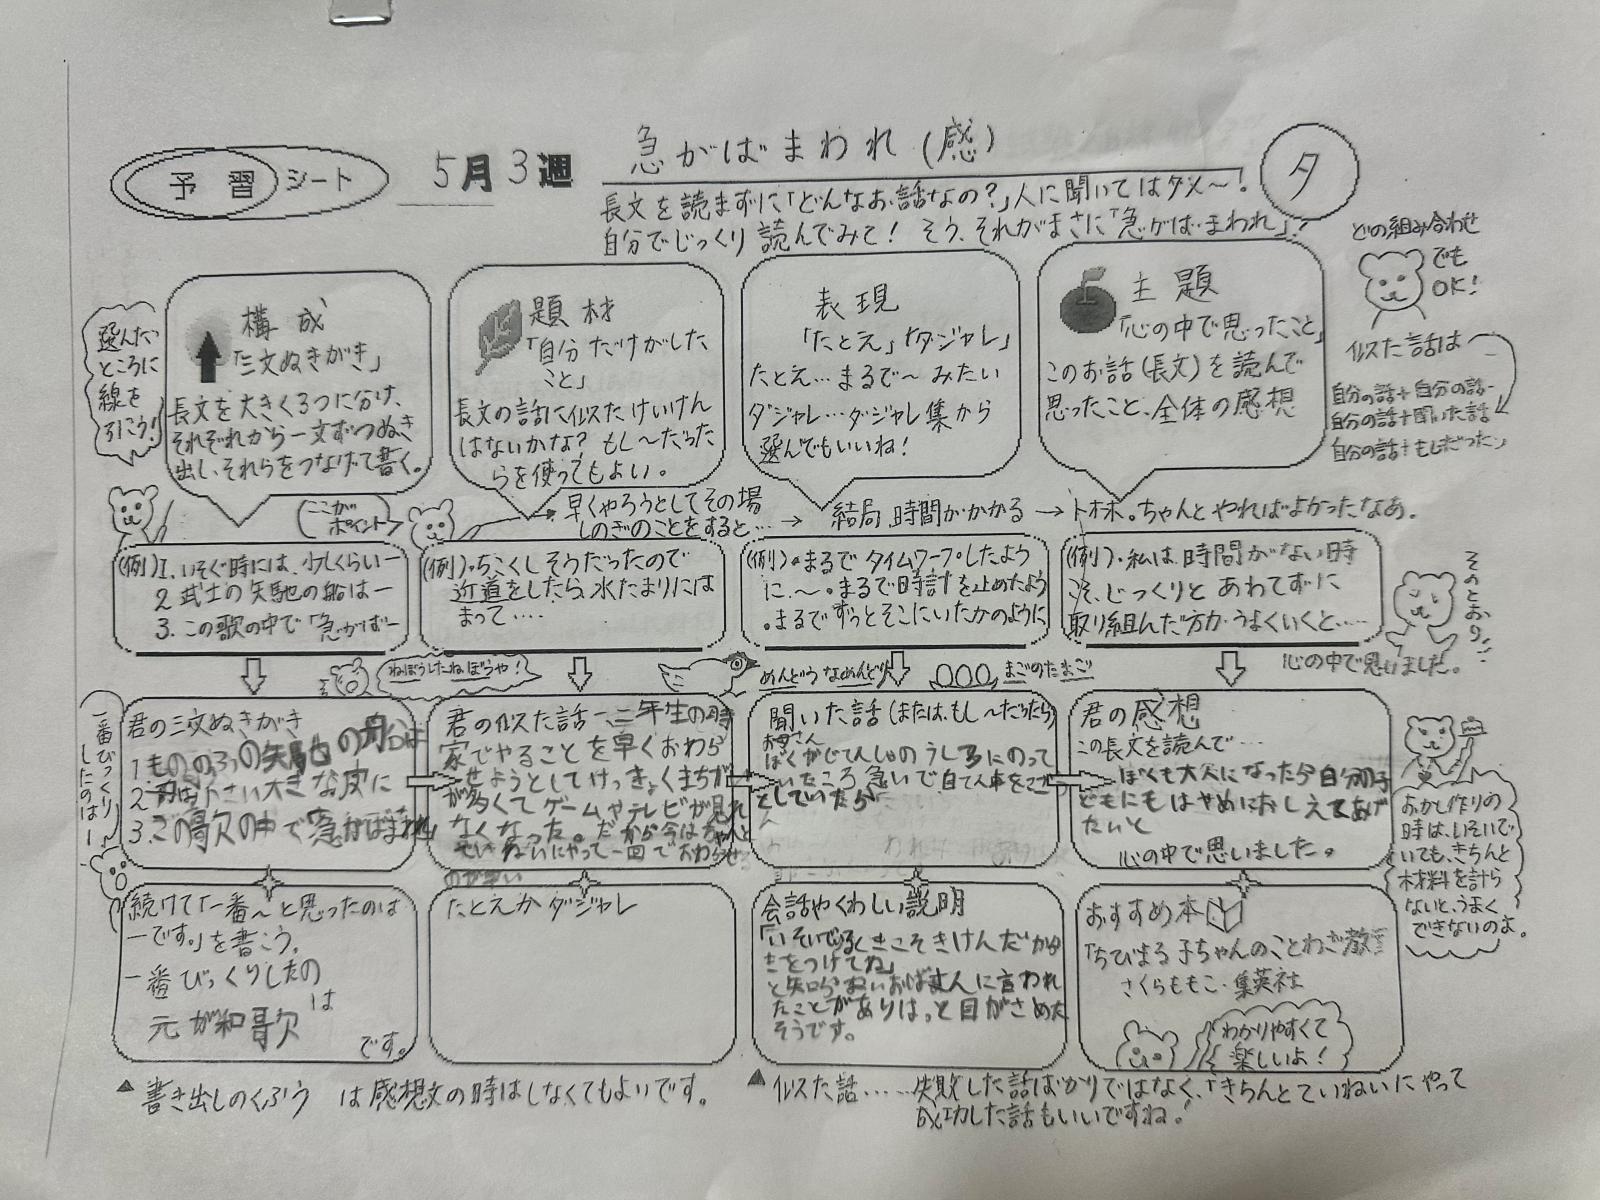 予習シート
5月3週
急がばまわれ(感)
夕
長文を読まずに「どんなお話なの?」人に聞いてはダメ〜!
自分でじっくり読んでみて! そう、それがまさに「急がば・まわれ」!
どの組み合わせ
でも
OK!
選んだ
ところに
線を
引こう!
構成
「三文ぬきがき」
長文を大きく3つに分け、
それぞれから一文ずつぬき
出し、それらをつなげて書く。
題材
「自分だけがした
こと」
長文の話に似たけいけん
はないかな? もし〜だった
らを使ってもよい。
表現
「たとえ」「ダジャレ」
たとえ…まるで〜みたい
ダジャレ…ダジャレ集から
選んでもいいね!
主題
「心の中で思ったこと」
このお話(長文)を読んで
思ったこと、全体の感想
似た話は
自分の話+自分の話
自分の話+聞いた話
自分の話+もしだったら
ここが
ポイント
早くやろうとしてその場
しのぎのことをすると…→
結局、時間がかかる
→トホホ。ちゃんとやればよかったなあ。
(例)1. いそぐ時には、少しくらいー
2. 武士の矢馳の船はー
3. この歌の中で「急がばー
(例)・ちこくしそうだったので
近道をしたら、水たまりには
まって‥‥
(例)・まるでタイムワープしたよう
に、〜。・まるで時計を止めたよう
・まるでずっとそこにいたかのように
(例)・私は、時間がない時
こそ、じっくりとあわてずに
取り組んだ方がうまくいくと……
心の中で思いました。
そのとおり!
ねぼうしたねぼうや!
めんどうなめんどり
まごのたまご
一番びっくり
したのはー
君の三文ぬきがき
1 もののふの矢馳の船は
2 小さい大きな皮に
3. この歌の中で急がばまわれ
君の似た話 一、二年生の時
家でやることを早くおわら
せようとしてけっきょくまちが
が多くてゲームやテレビが見れ
なくなった。だから今はちゃんと
ていねいにやって一回でおわらせ
るのが早い
聞いた話(または、もし〜だったら)
お母さん
ぼくがじてんしゃのうしろにのって
いたころ急いで自てん車をこご
としていたら
君の感想
この長文を読んで…
ぼくも大人になった今自分の子
どもにもはやめにおしえてあげ
たいと
心の中で思いました。
おかし作りの
時は、いそいで
いても、きちんと
材料を計ら
ないと、うまく
できないのよ。
続けて「一番〜と思ったのは
ーです。」を書こう。
一番びっくりしたの
は
元が和歌
です。
たとえかダジャレ
会話やくわしい説明
「いそいでるときこそきけんだから
きをつけてね」
と知らないおばさんに言われ
たことがありはっと目がさめた
そうです。
おすすめ本
「ちびまる子ちゃんのことわざ教室」
さくらももこ・集英社
わかりやすくて
楽しいよ!
▲書き出しのくふうは感想文の時はしなくてもよいです。
▲似た話……失敗した話ばかりではなく、「きちんとていねいにやって
成功した話もいいですね!